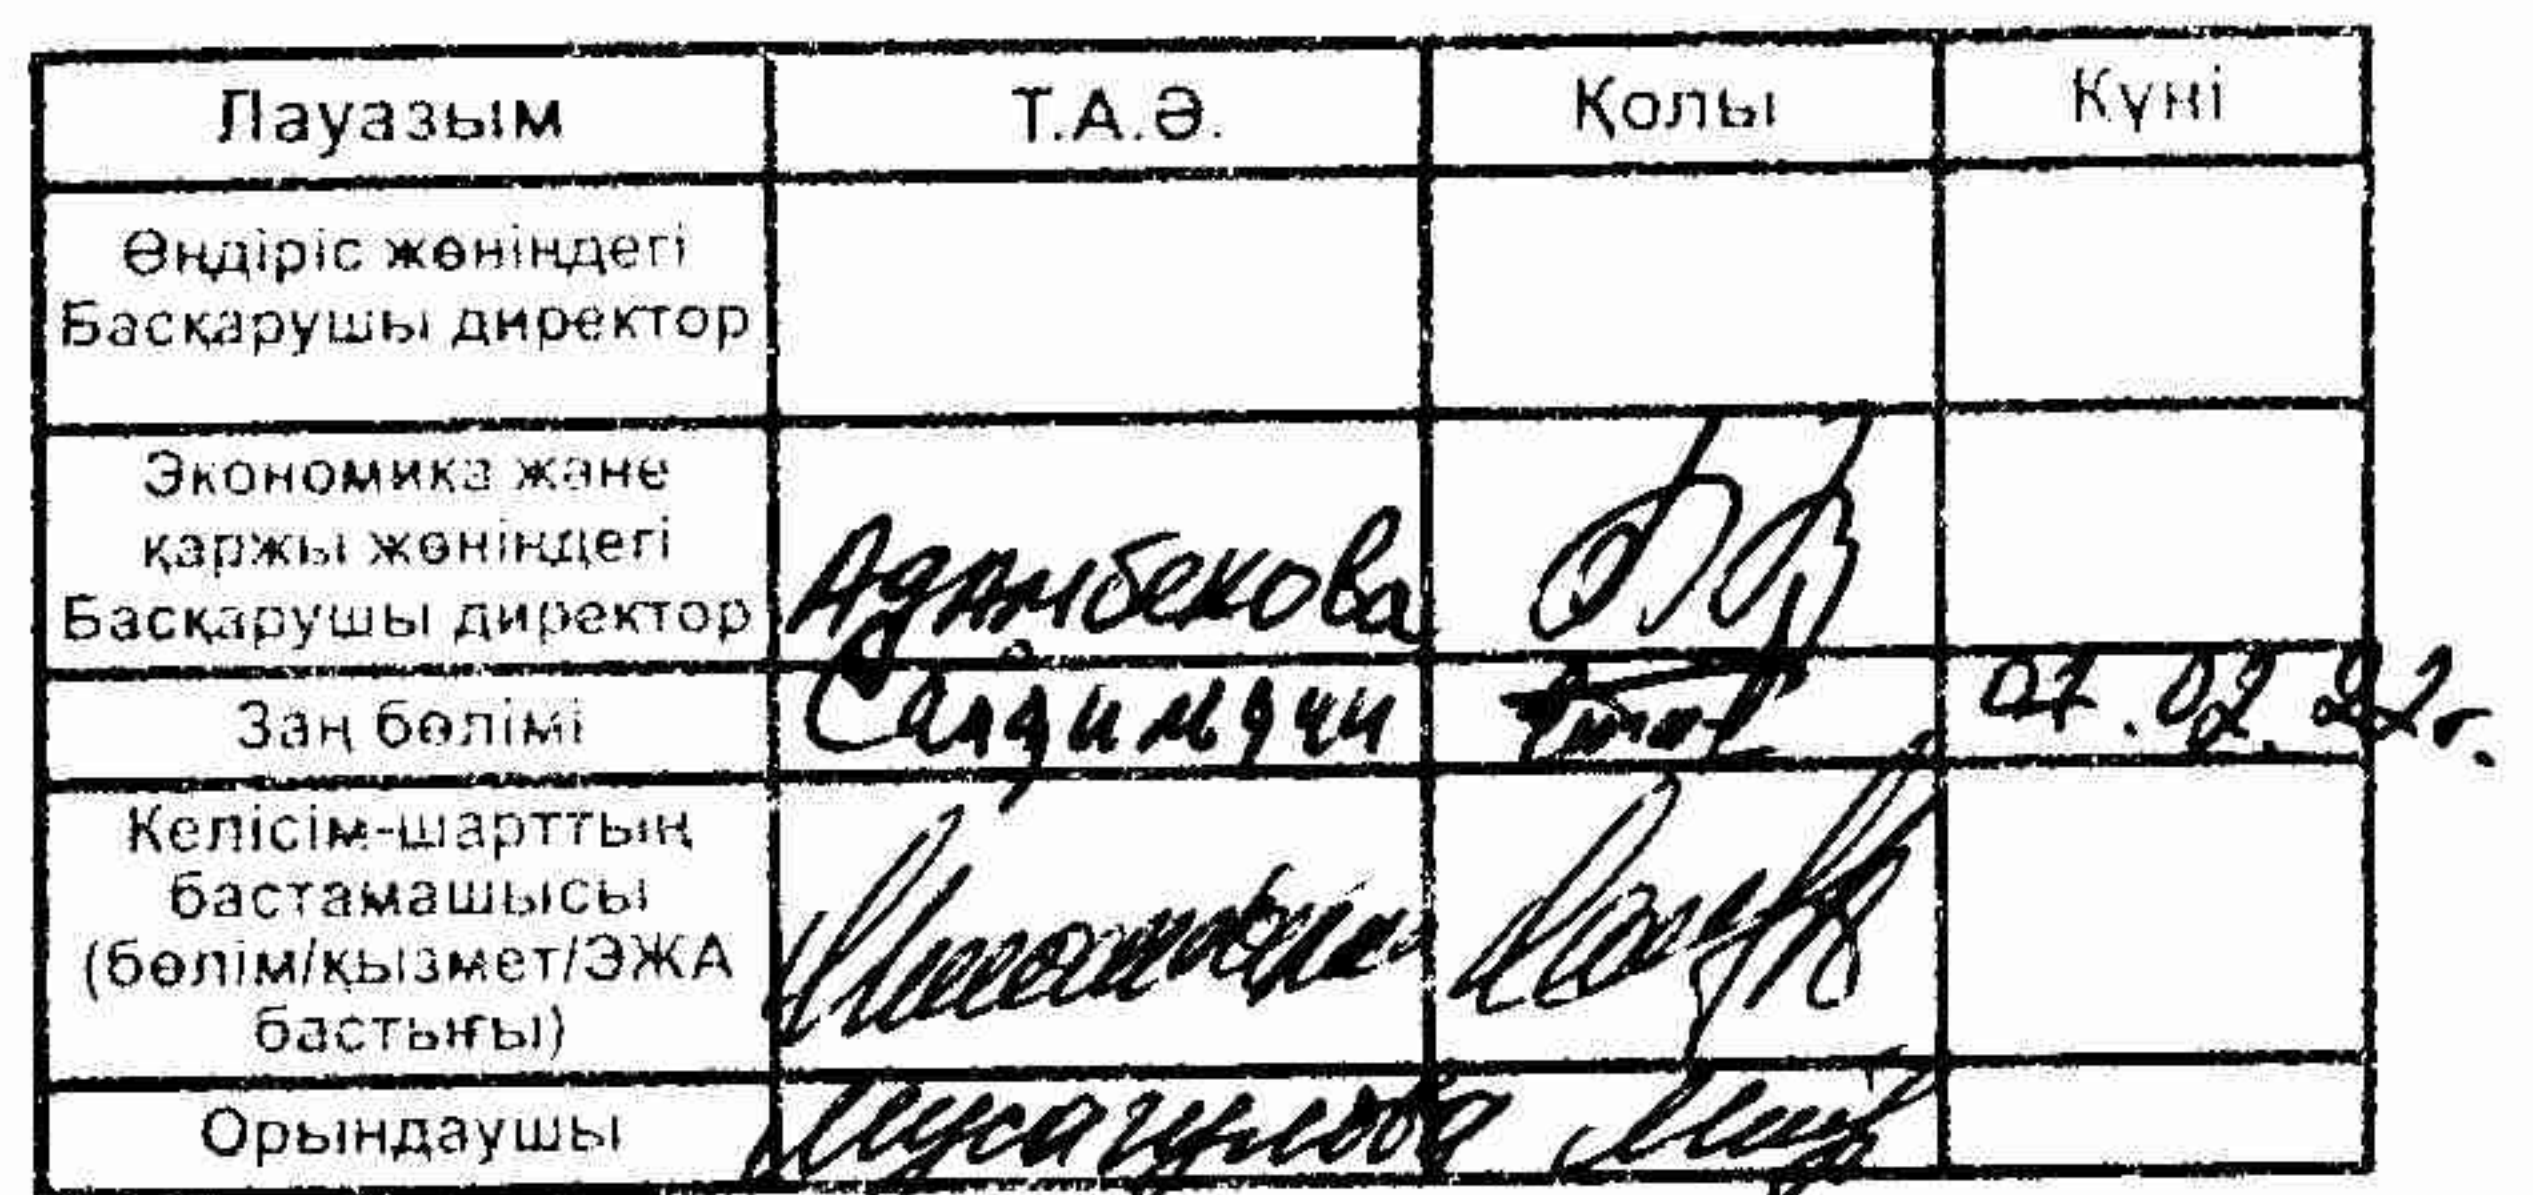 Лауазым Т.А.Ә. Қолы Күні
Өндіріс жөніндегі
Басқарушы директор
Экономика және
қаржы жөніндегі
Басқарушы директор Адамбекова
Заң бөлімі 07.02.22г.
Келісім-шарттың
бастамашысы
(бөлім/қызмет/ЭЖА
бастығы)
Орындаушы Мусагулова